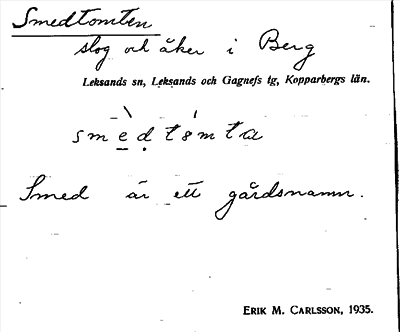 Smedtomten
slog och åker i Berg
Leksands sn, Leksands och Gagnefs tg, Kopparbergs län.
smedtomta
Smed är ett gårdsnamn.
ERIK M. CARLSSON, 1935.